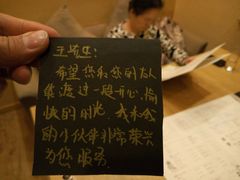 王先生：
希望您和您的友人
能渡过一段开心、愉
快的时光，我木会
的小伙伴非常荣兴
为您服务